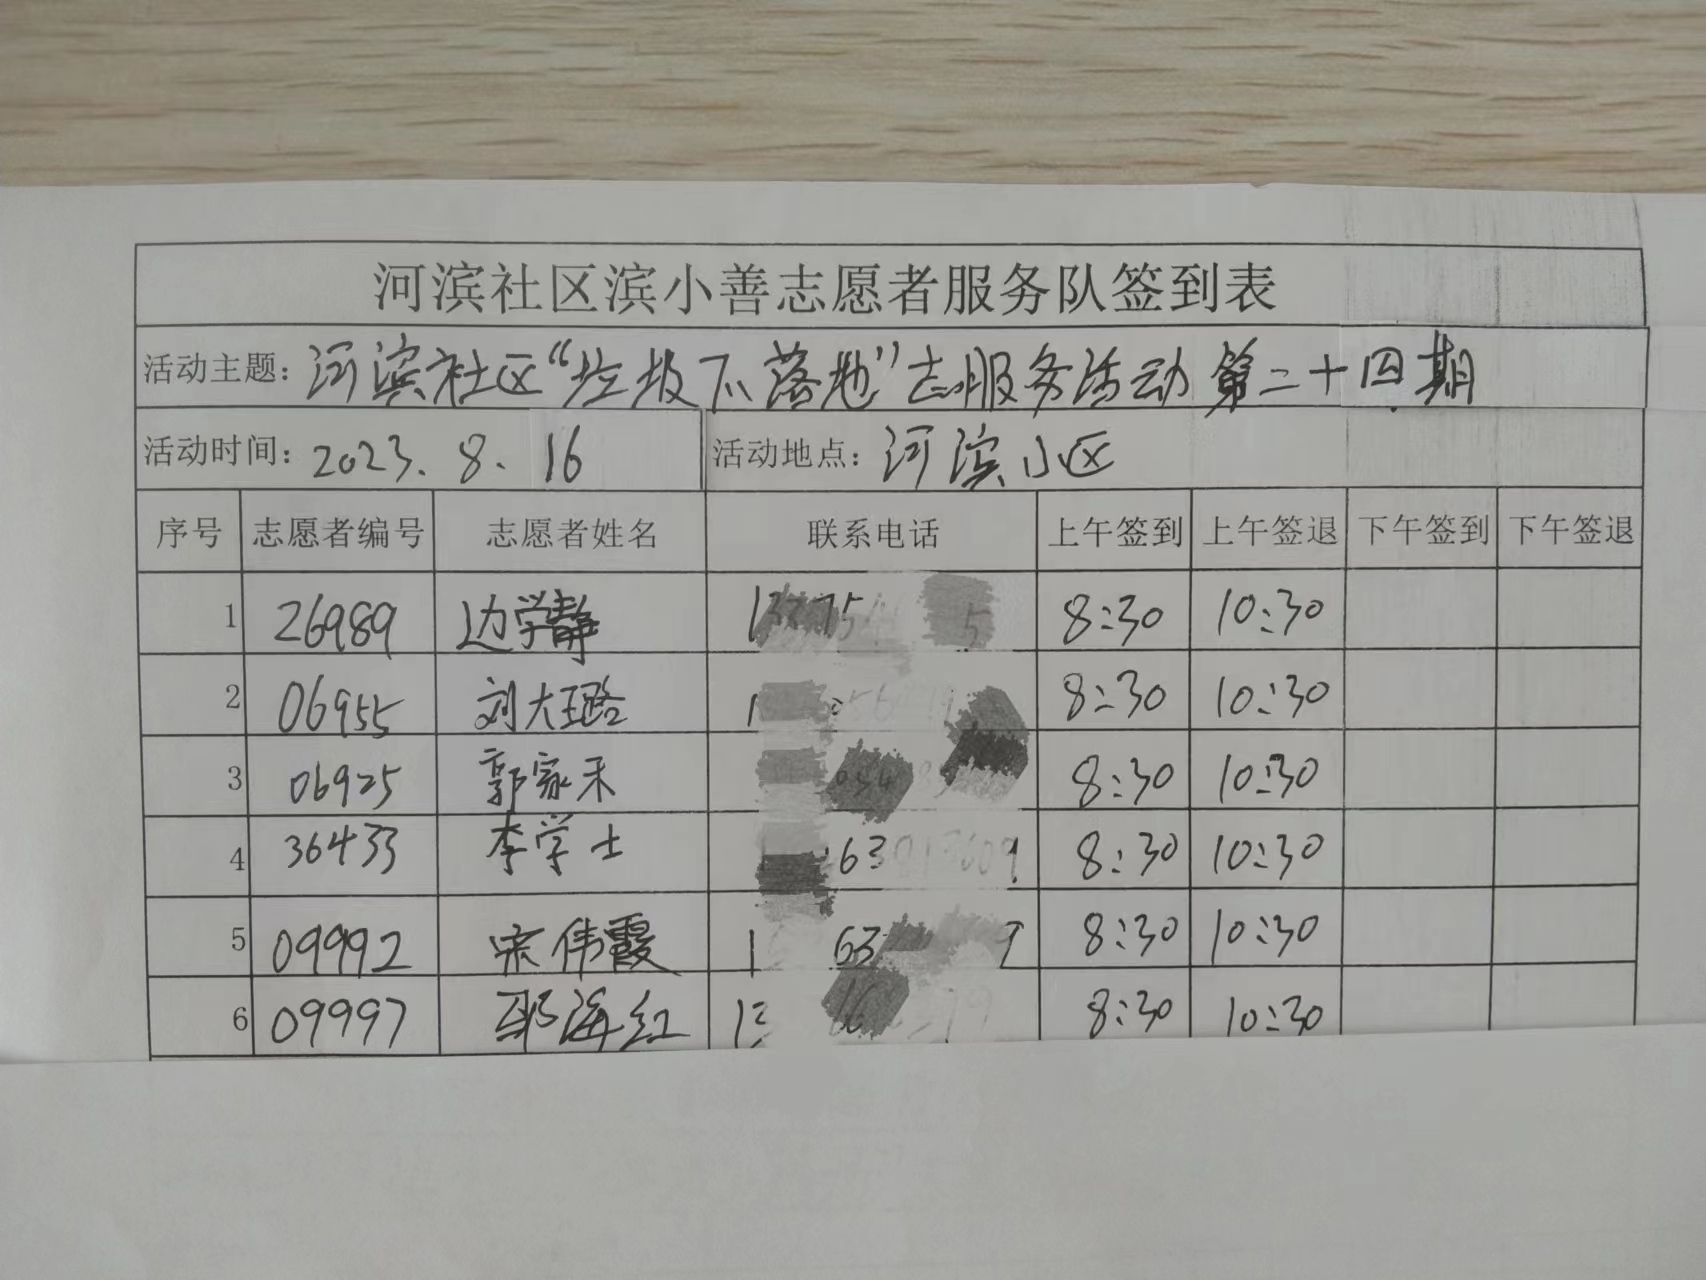 河滨社区滨小善志愿者服务队签到表
活动主题：河滨社区“垃圾不落地”志服务活动第二十四期
活动时间：2023.8.16 活动地点：河滨小区
序号 志愿者编号 志愿者姓名 联系电话 上午签到 上午签退 下午签到 下午签退
1 26989 边学静 8:30 10:30
2 06955 刘大璐 8:30 10:30
3 06925 郭家禾 8:30 10:30
4 36433 李学士 63 8:30 10:30
5 09992 宋伟霞 1 63 9 8:30 10:30
6 09997 海红 13 8:30 10:30